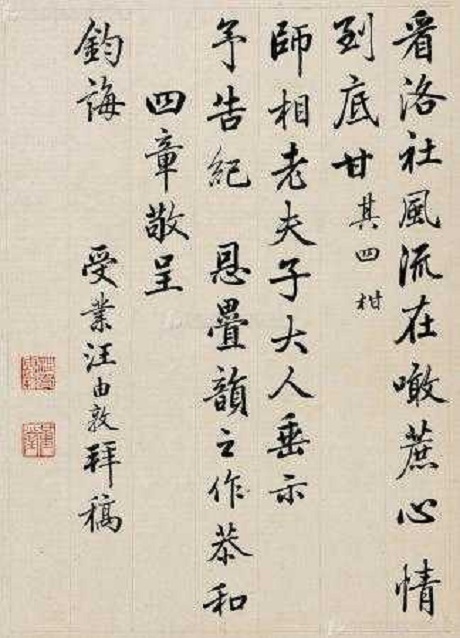 看洛社風流在噉蔗心情
到底甘 其四柑
師相老夫子大人垂示
予告紀 恩疊韻之作恭和
四章敬呈
鈞誨 受業汪由敦拜稿